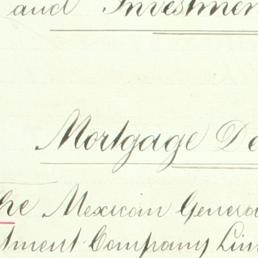 and Investmen
Mortgage De
The Mexican Genera
tment Company Lim